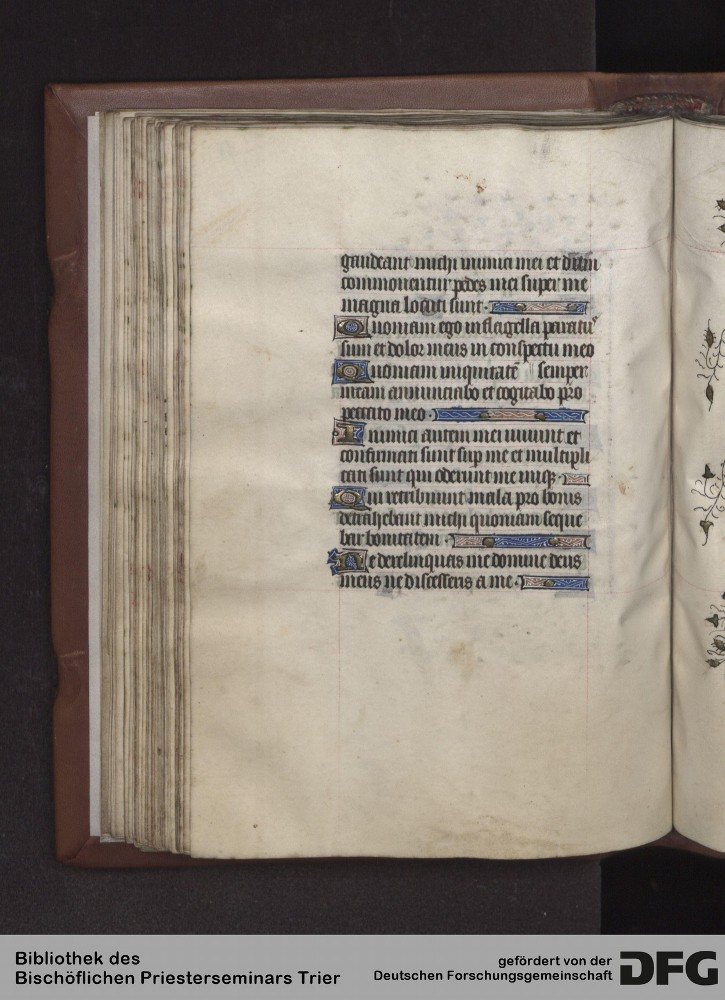 gaudeant michi inimici mei et dum
commouentur pedes mei super me
magna locuti sunt.
Quoniam ego in flagella paratus
sum et dolor meus in conspectu meo
Quoniam iniquitatē semper
meam annunciabo et cogitabo pro
peccato meo.
Inimici autem mei uiuunt et
confirmati sunt sup me et multipli
cati sunt qui oderunt me iniq.
Qui retribuunt mala pro bonis
detrahebant michi quoniam seque
bar bonitatem.
Ne derelinquas me domine deus
meus ne discesseris a me.
Bibliothek des
Bischöflichen Priesterseminars Trier
gefördert von der
Deutschen Forschungsgemeinschaft
DFG